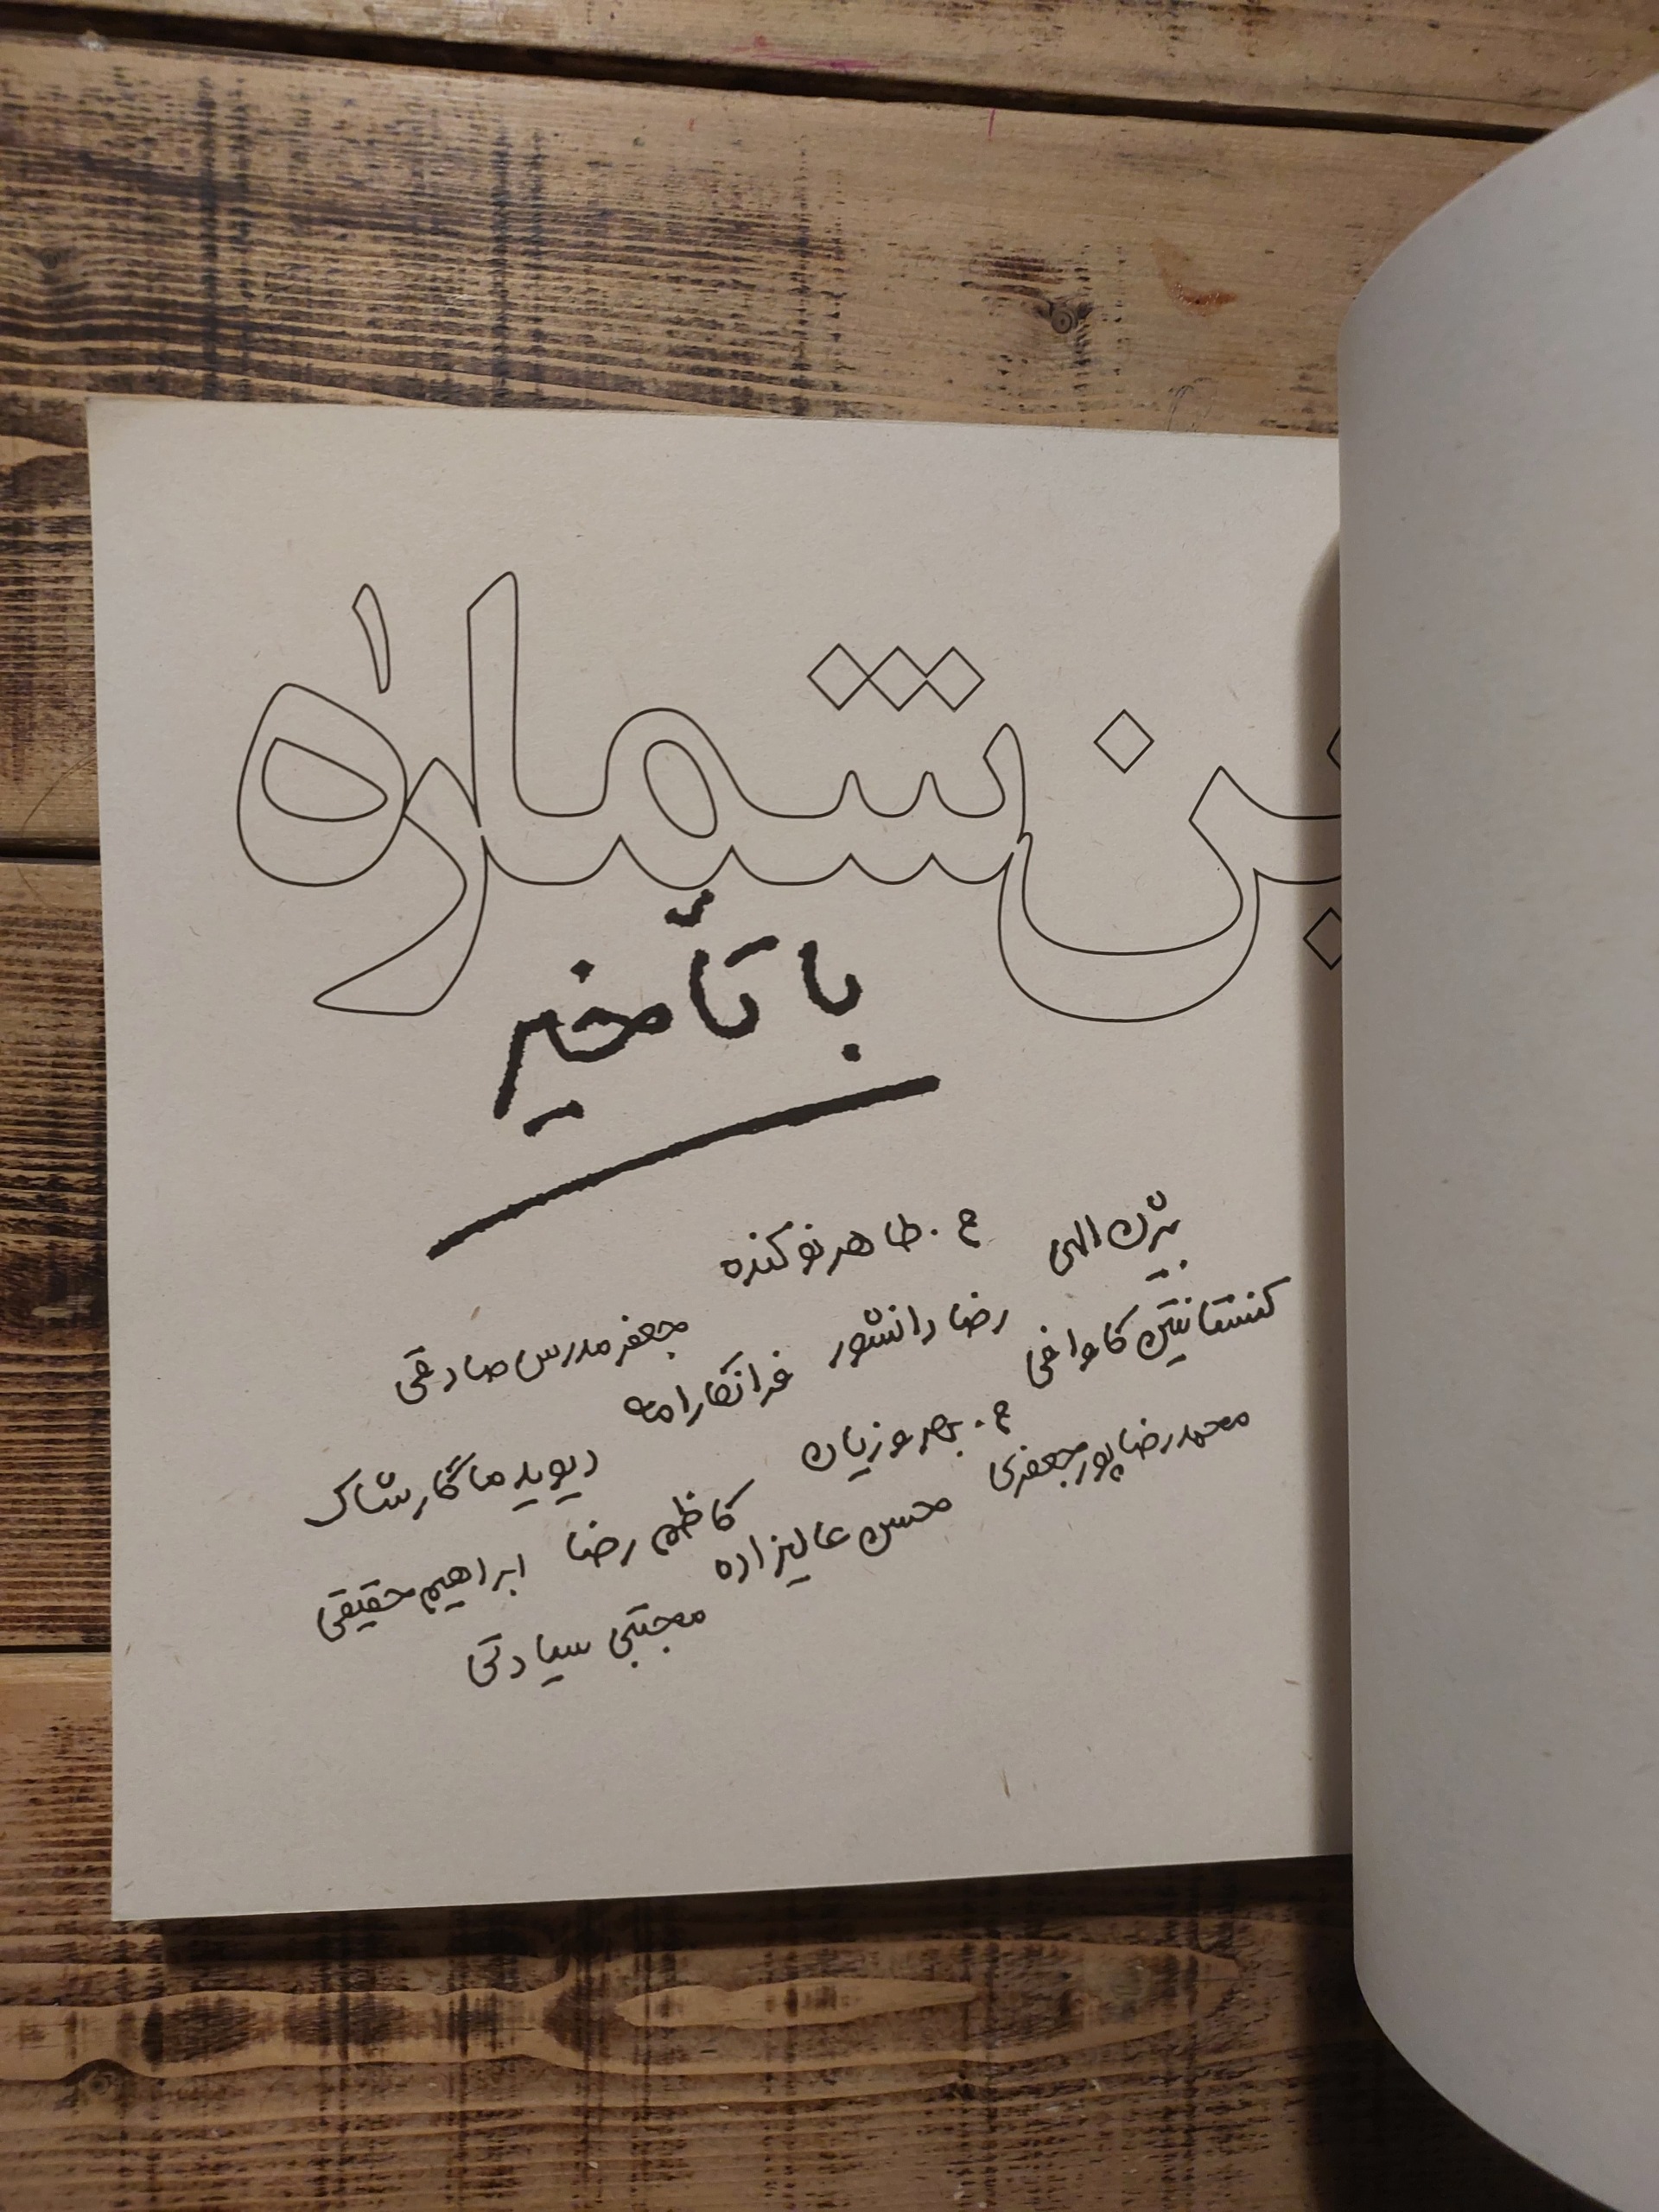 ین شمارهٔ
با تأخیر
بیژن الهی م. طاهر نوکنده جعفر مدرس صادقی
کنستانتین کاوافی رضا دانشور فرانکارامه دیوید ماگارشاک
محمدرضا پورجعفری م. بهروزیان کاظم رضا ابراهیم حقیقی
محسن عالیزاده مجتبی سیادتی